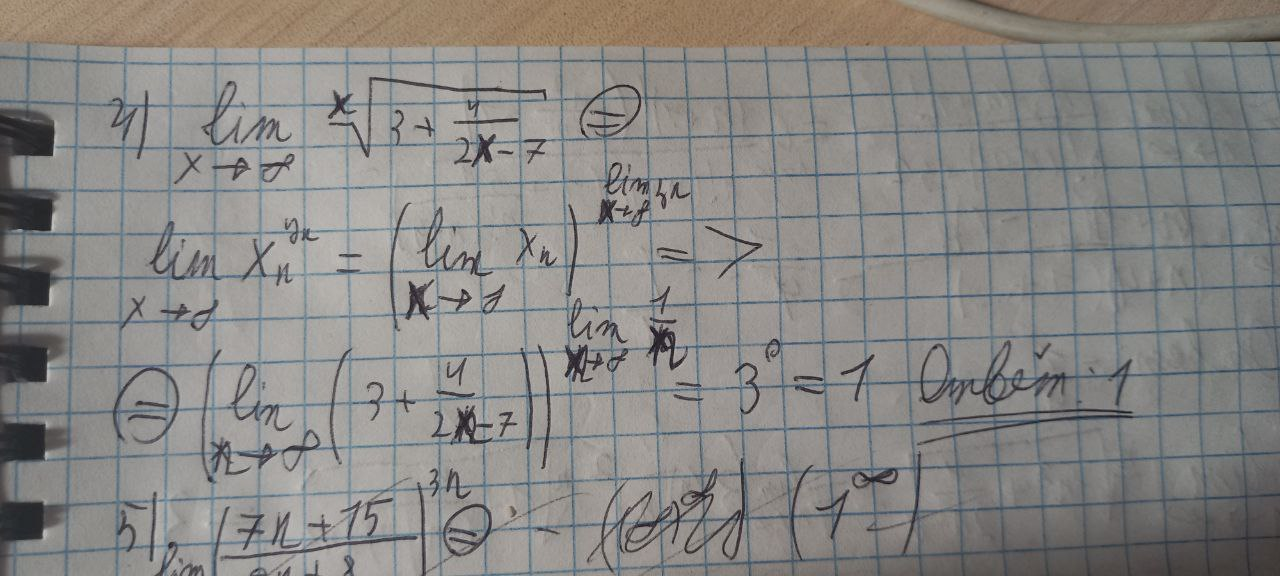 4) lim x→∞ ˣ√(3 + 4/(2x-7)) =
lim x→∞ xₙ^(yₙ) = (lim x→∞ xₙ)^(lim x→∞ yₙ) =>
= (lim n→∞ (3 + 4/(2n-7)))^(lim n→∞ 1/n) = 3⁰ = 1 Ответ: 1
5) lim (7n+15 /)^(3n) = - (1^∞)